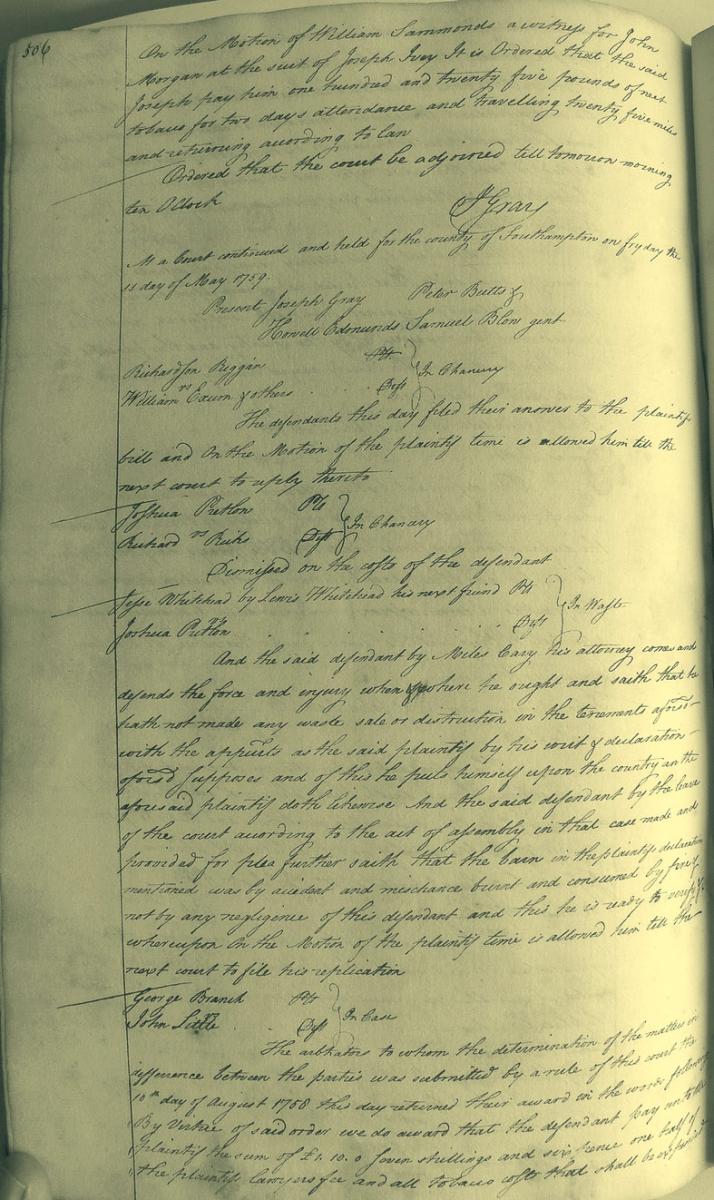 506
On the Motion of William Sammonds a witness for John
Morgan at the suit of Joseph Ivey It is Ordered that the said
Joseph pay him one hundred and twenty five pounds of nett
tobacco for two days attendance and travelling twenty five miles
and returning according to law
Ordered that the court be adjorned till tomorrow morning
ten OClock
J Gray
At a Court continued and held for the county of Southampton on fryday the
11 day of May 1759.
Present Joseph Gray Peter Butts &
Howell Edmunds Samuel Blow gent
Richardson Reggan Plt
William vs Exum & others Deft In Chancery
The defendants this day filed their answer to the plaintifs
bill and On the Motion of the plaintif time is allowed him till the
next court to reply thereto
Joshua Plt
Richard vs Ricks Deft In Chancery
Dismissed on the costs of the defendant
Jesse Whitehead by Lewis Whitehead his next friend Plt
Joshua Deft In Waste
And the said defendant by Miles Cary his attorney comes and
defends the force and injury when & where he ought and saith that he
hath not made any waste sale or distruction in the tenements aforsd
with the appurts as the said plaintif by his writ & declaration
aforsd supposes and of this he puts himself upon the country an the
aforesaid plaintif doth likewise And the said defendant by the leave
of the court according to the act of assembly in that case made and
provided for plea further saith that the barn in the plaintifs declaration
mentioned was by accident and mischance burnt and consumed by fire &
not by any negligence of this defendant and this he is ready to verify &c
whereupon On the Motion of the plaintif time is allowed him till the
next court to file his replication
George Branch Plt
John Deft In Case
The arbitrators to whom the determination of the matters in
difference between the parties was submitted by a rule of this court the
10th day of August 1758 this day returned their award in the words following
By Virtue of said order we do award that the defendant pay unto the
plaintif the sum of £1. 10. 0 seven shillings and six pence one half of
the plaintifs lawyers fee and all tobacco costs that shall be